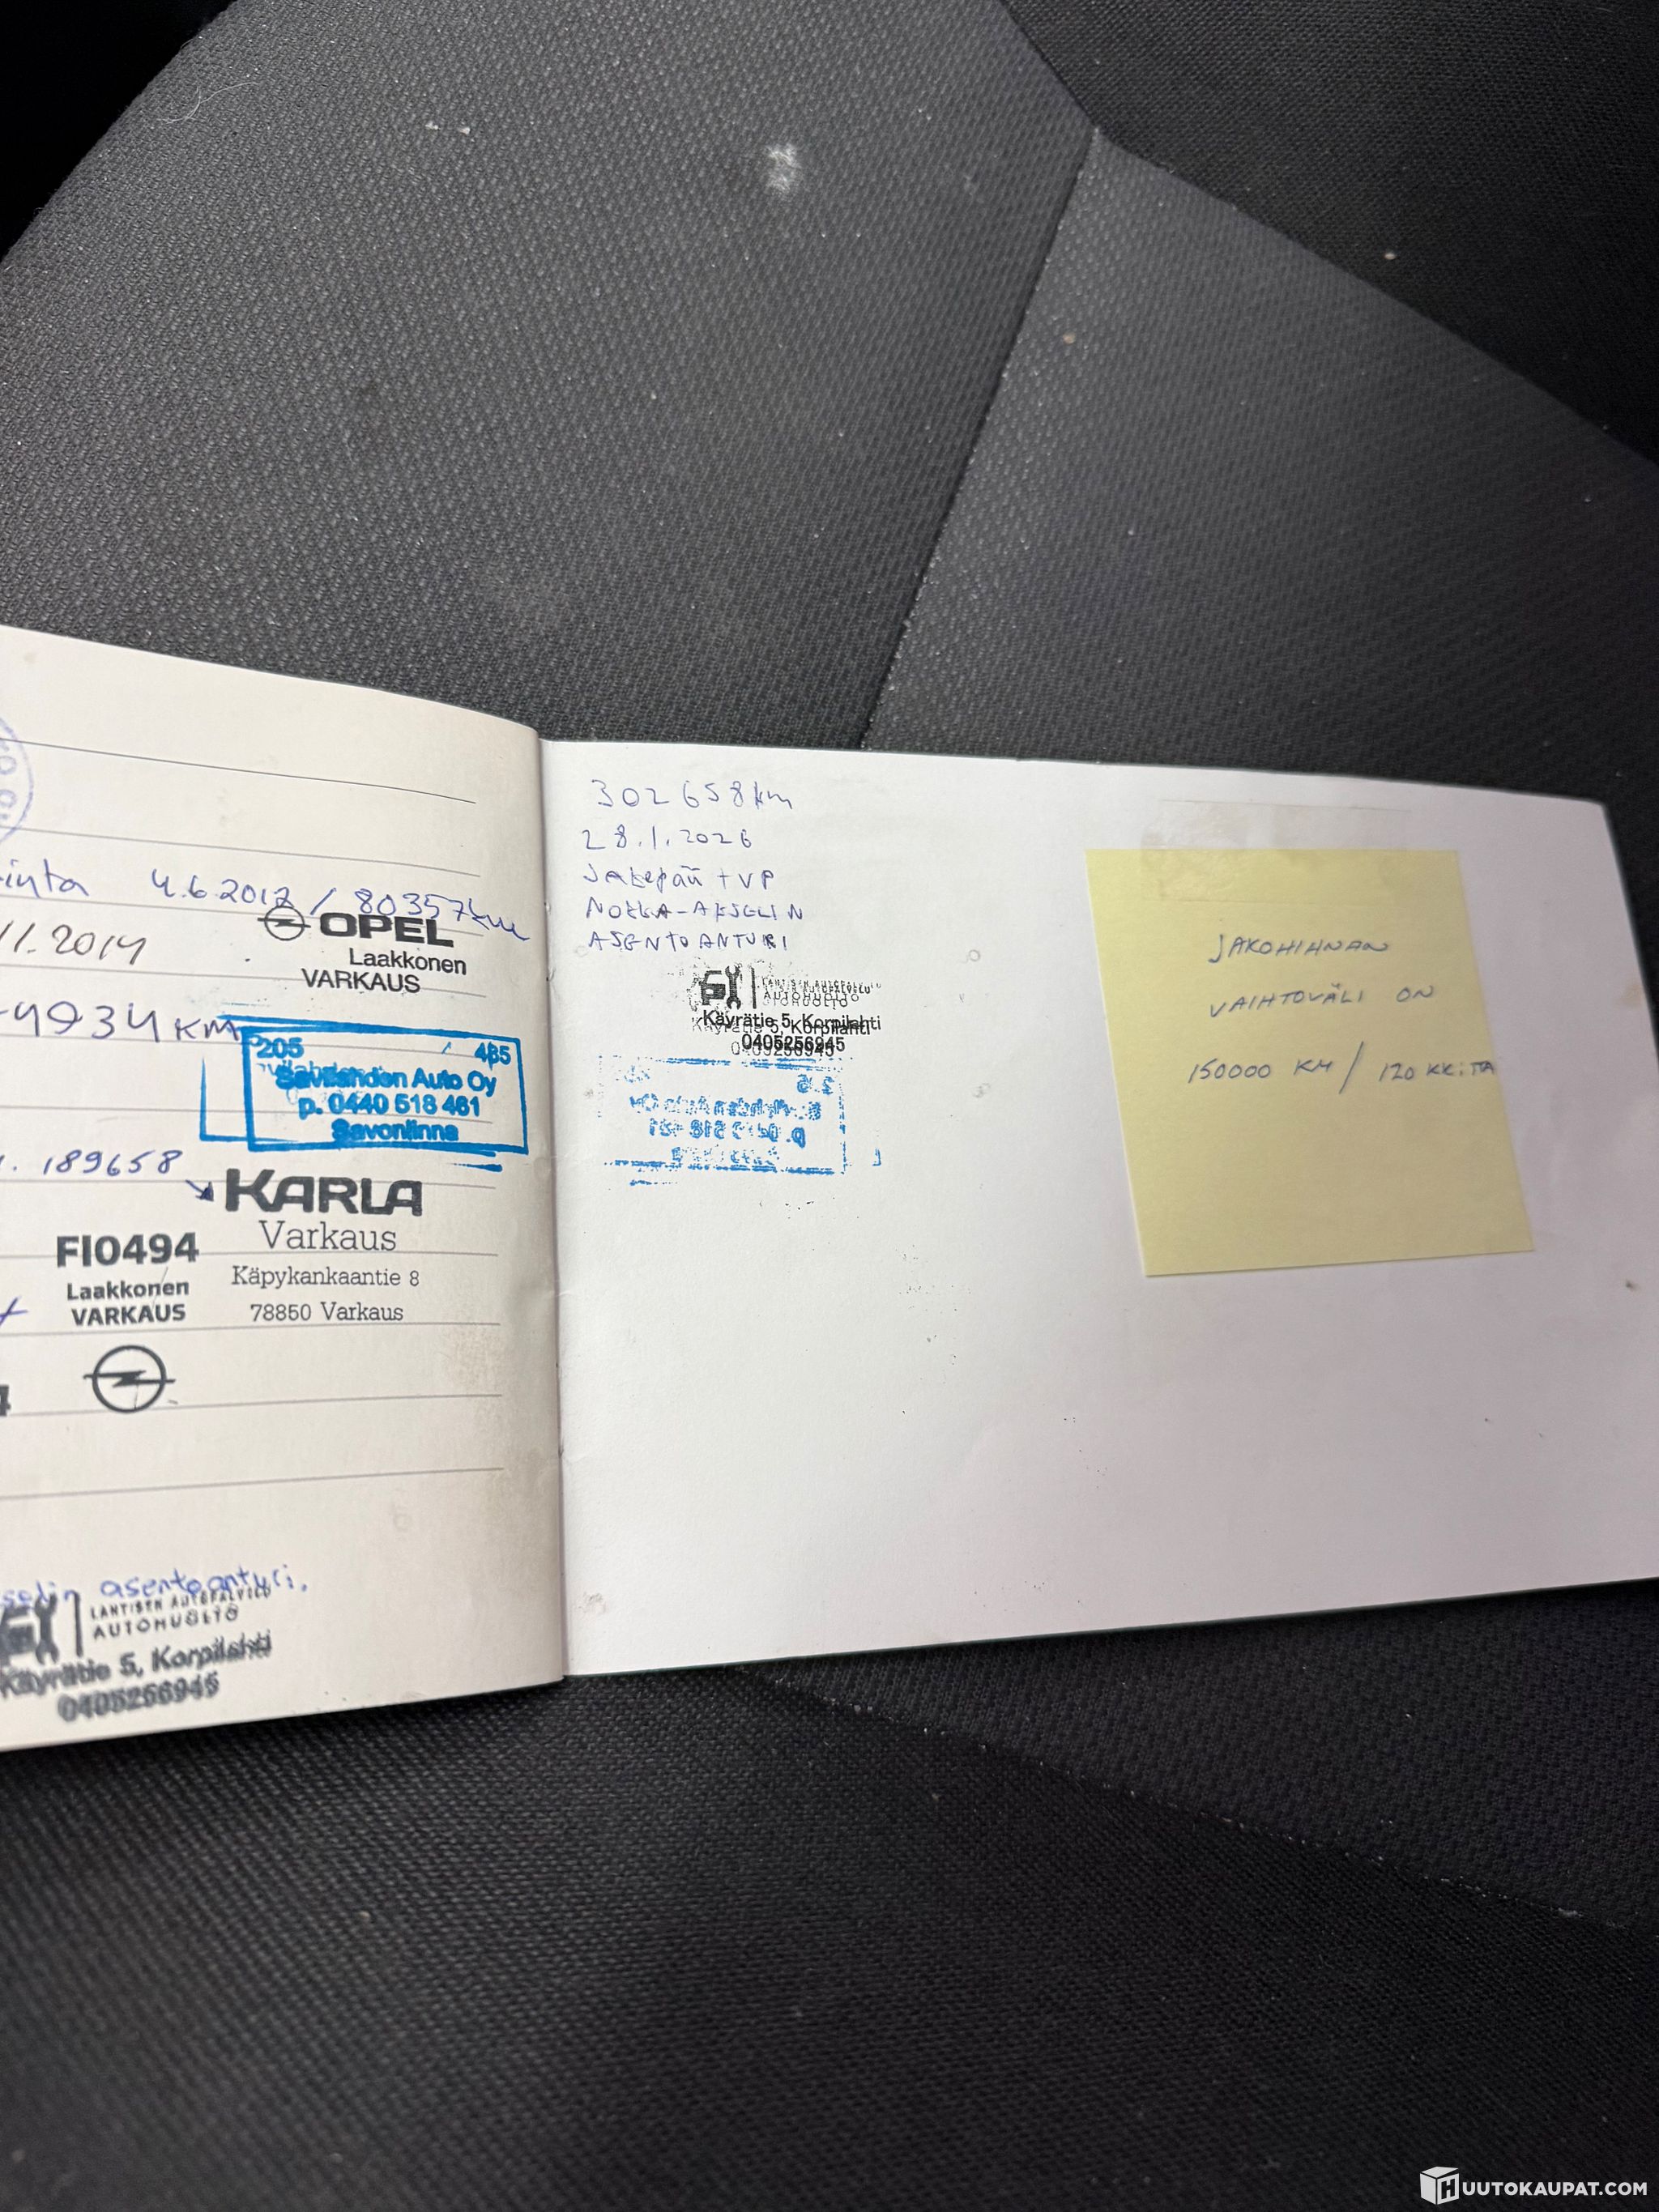 inta 4.6.2012 / 80357km
OPEL
Laakkonen
VARKAUS
11.2014
4934 KM
205 485
Savilahden Auto Oy
p. 0440 518 461
Savonlinna
189658
KARLA
Varkaus
Käpykankaantie 8
78850 Varkaus
FI0494
Laakkonen
VARKAUS
selin asentoanturi.
LANTISEN AUTOPALVELU
AUTOHUOLTO
Käyrätie 5, Korpilahti
0405256945
302658km
28.1.2026
Jakopää + VP
NOKKA-AKSELIN
ASENTOANTURI
AUTOHUOLTO
Käyrätie 5, Korpilahti
0405256945
JAKOHIHNAN
VAIHTOVÄLI ON
150000 KM / 120 KK:TA
HUUTOKAUPAT.COM